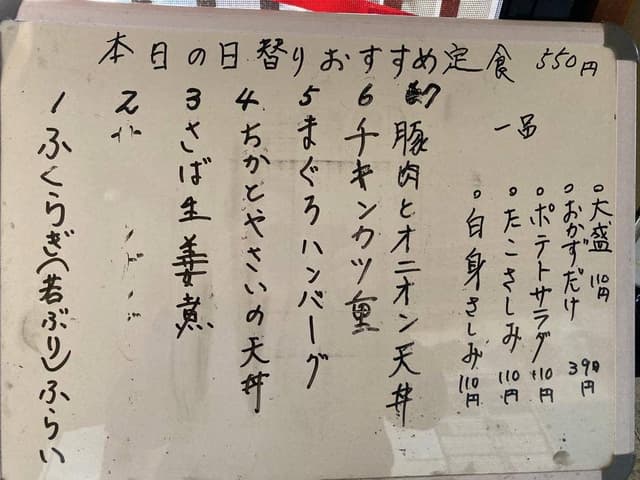 本日の日替りおすすめ定食 550円
1 ふくらぎ(若ぶり)ふらい
2
3 さば生姜煮
4 ちかとやさいの天丼
5 まぐろハンバーグ
6 チキンカツ重
7 豚肉とオニオン天丼
一品
○白身さしみ 110円
○たこさしみ 110円
○ポテトサラダ 110円
○おかずだけ 390円
○大盛 110円